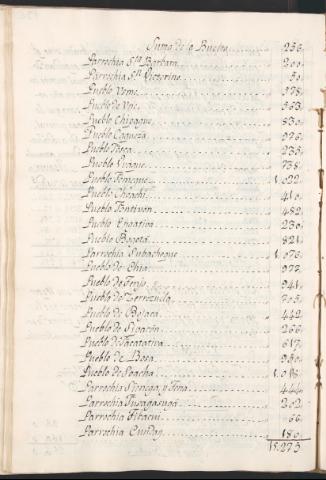 Suma de la Buelta 256.
Parrochia Sta. Barbara 200.
Parrochia Sn. Victorino 50.
Pueblo Vsme 378.
Pueblo de 563.
Pueblo Chipaque 830.
Pueblo Caqueza 926.
Pueblo 235.
Pueblo 738.
Pueblo 1.022.
Pueblo Choachi 410.
Pueblo Fontivon 482.
Pueblo Engativa 230.
Pueblo Bogotá 821.
Parrochia Subachoque 1.076.
Pueblo de Chia 977.
Pueblo de Tenjo 941.
Pueblo de 705.
Pueblo de Bojaca 442.
Pueblo de Sipacon 266.
Pueblo de Facatativa 617.
Pueblo de Bosa 980.
Pueblo de Soacha 1.098.
Parrochia y 444.
Parrochia Fusagasuga 202.
Parrochia 66.
Parrochia Cunday 180.
15.273